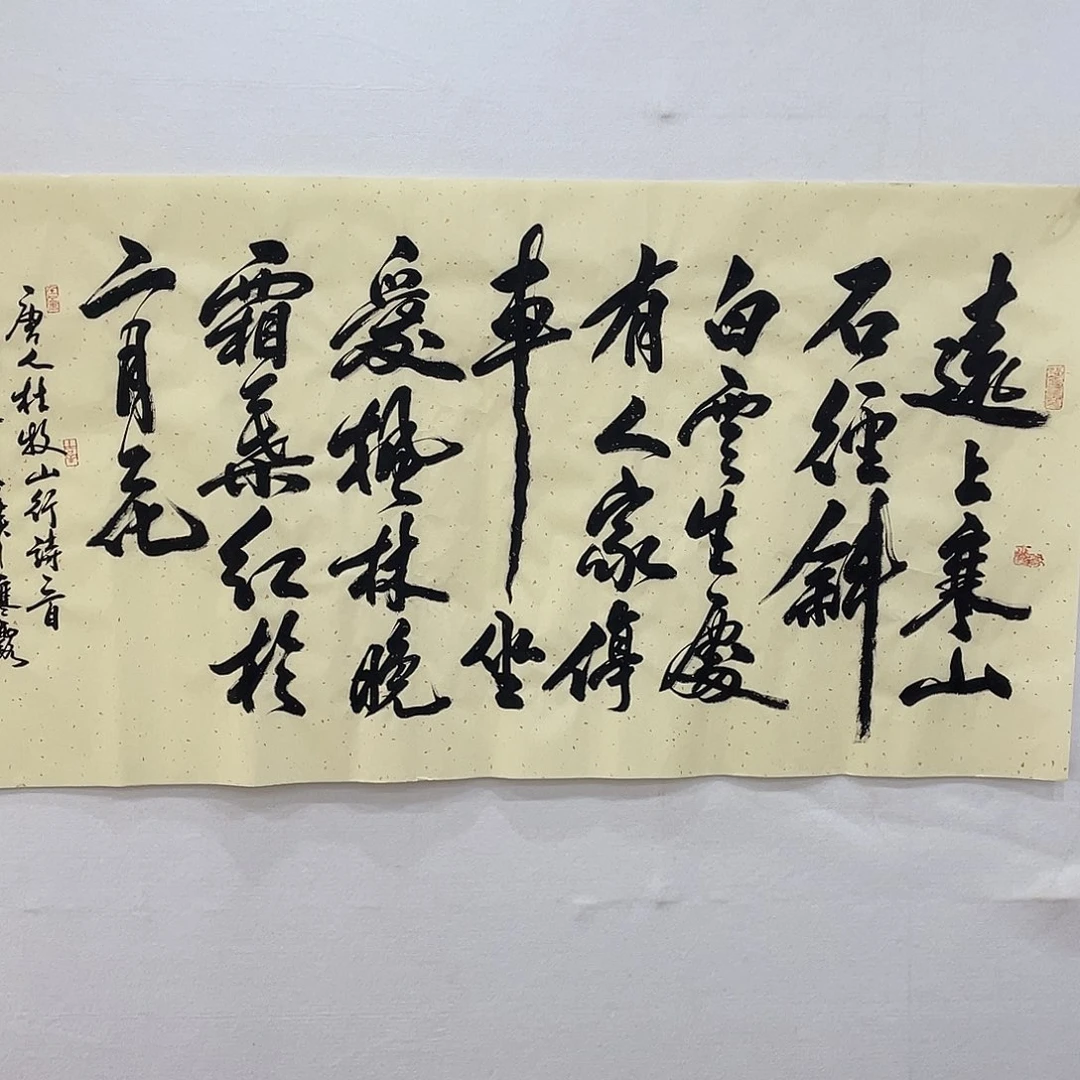 遠上寒山
石徑斜
白雲生處
有人家停
車坐
愛楓林晚
霜葉紅於
二月花
唐人杜牧山行詩一首
寒露